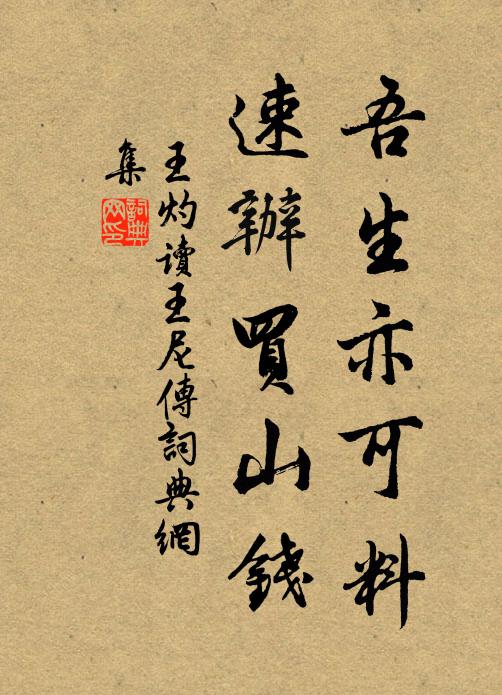 吾生亦可料
速辦買山錢
王灼讀王尼傳詞典網
集
詞典
网印